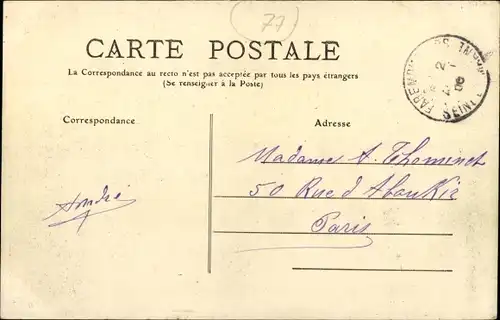 77
CARTE POSTALE
La Correspondance au recto n'est pas acceptée par tous les pays étrangers
(Se renseigner à la Poste)
Correspondance
Adresse
Madame A. Thominet
50 Rue d'Aboukir
Paris
André